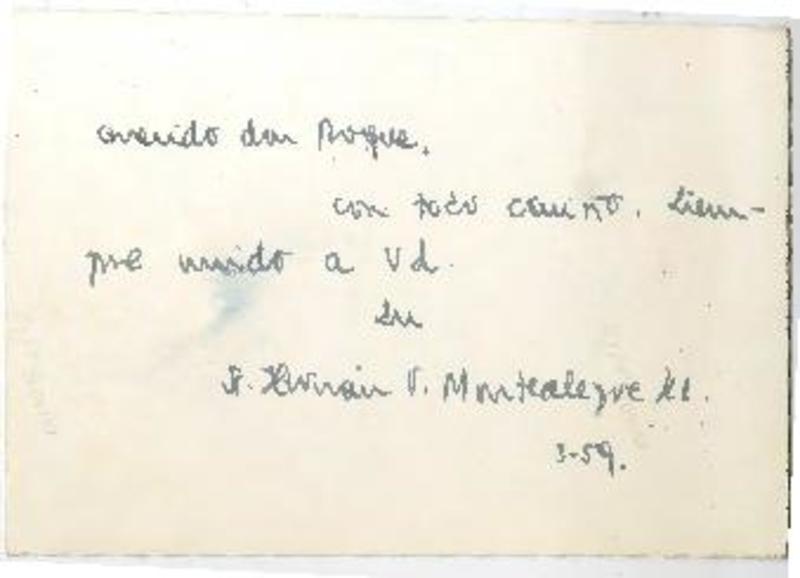 querido don Roque,
con todo cariño. siem-
pre unido a Vd.
su
P. Hernán V. Montealegre
3-59.